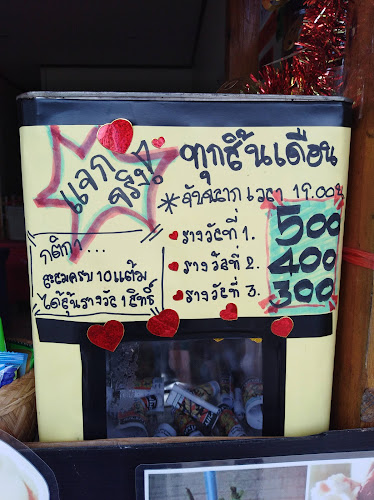 แจก
จริง!
ทุกสิ้นเดือน
*จับฉลาก เวลา 19.00น
กติกา...
สะสมครบ 10 แต้ม
ได้ลุ้นรางวัล 1 สิทธิ์
รางวัลที่ 1. 500
รางวัลที่ 2. 400
รางวัลที่ 3. 300